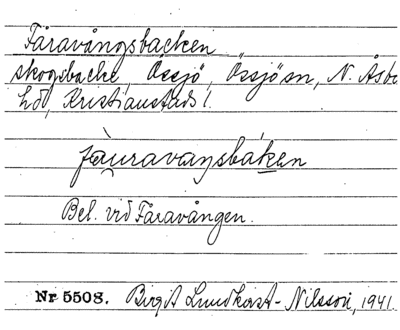 Fåravångsbacken
skogsbacke, Össjö, Össjö sn, N. Åsbo
hd, Kristianstads l.
fàuravaŋsbáken
Bel. vid Fåravången.
Nr 5508. Birgit Lundkvist-Nilsson, 1941.